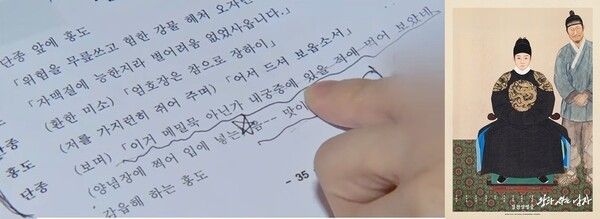 단종 앞에 홍도
「위험을 무릅쓰고 험한 강물 헤쳐 오자면
「자맥질에 능한지라 별어려움 없었사옵니다.」
단종 (환한 미소) 「엄호장은 참으로 장하이」
홍도 (저를 가지런히 쥐어 주며) 「어서 드셔 보옵소서」
단종 (보며) 「이거 메밀묵 아닌가 내궁중에 있을 적에 먹어 보았네
(양님장에 찍어 입에 넣는 흠--- 맛이
감읍해 하는 홍도
- 35
왕과 사는 남자